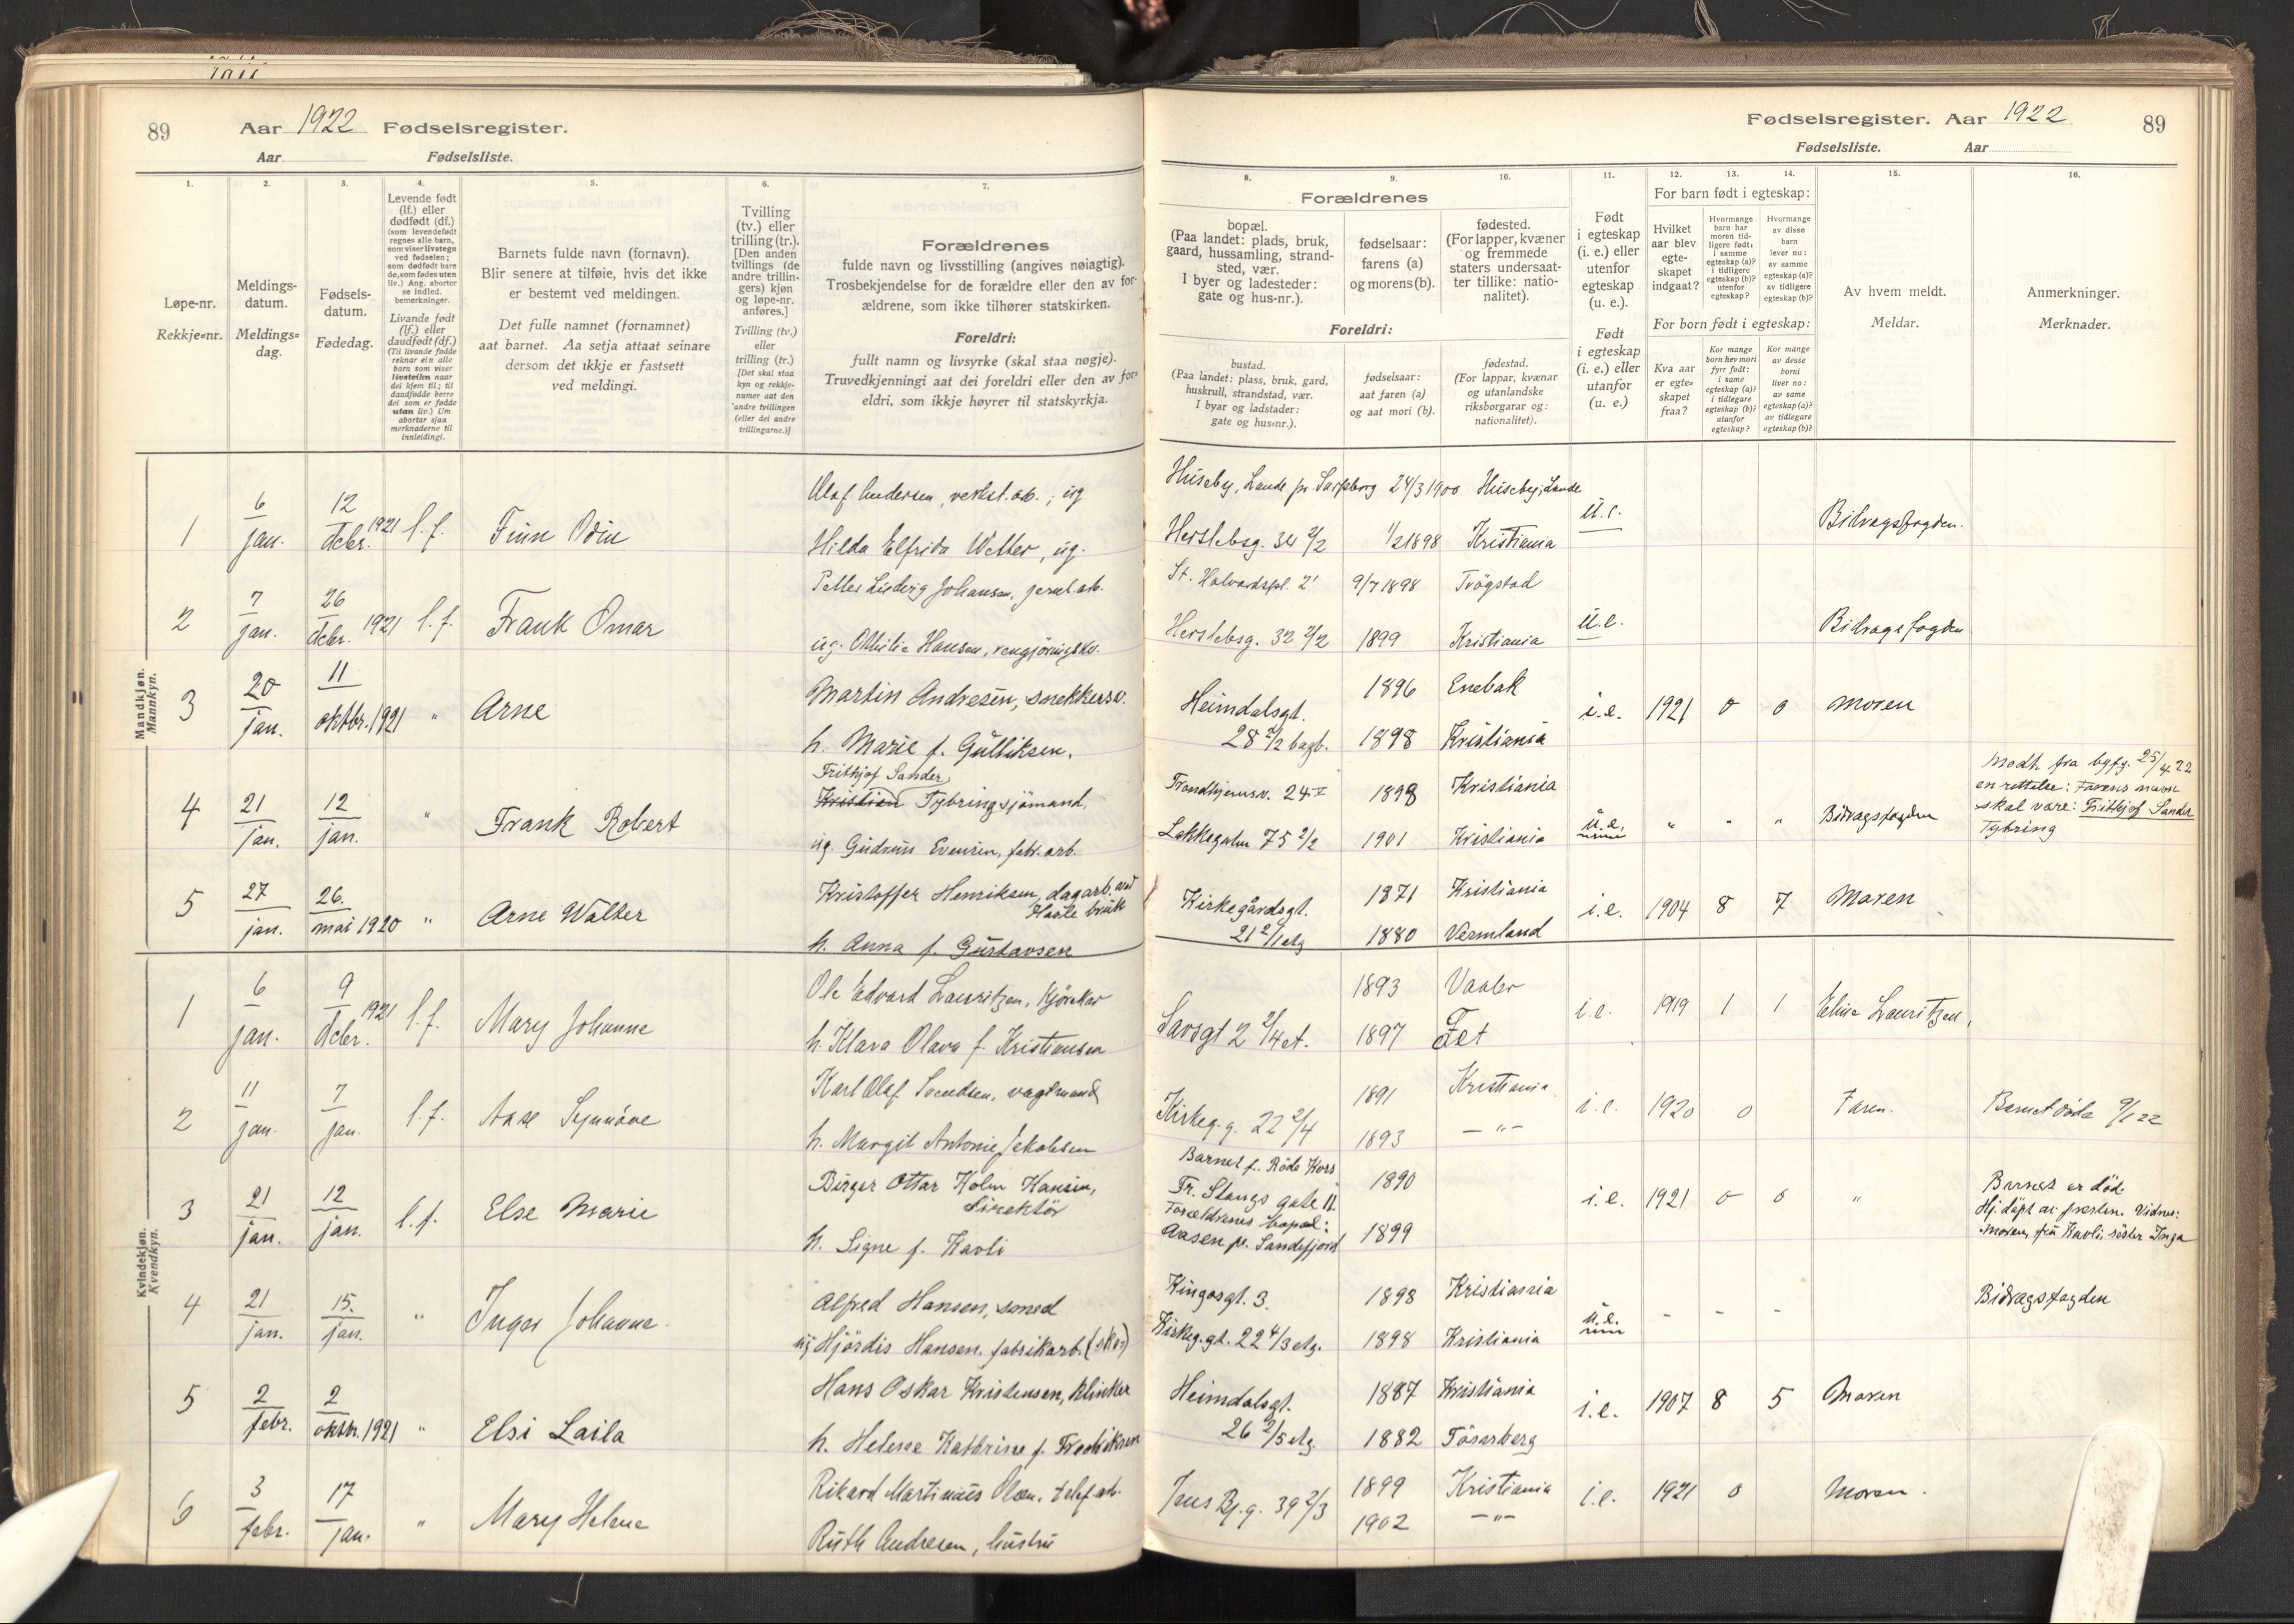 89 Aar 1922 Fødselsregister.
Aar Fødselsliste.
1. 2. 3. 4. 5. 6. 7.
Løpe-nr.
Rekkje-nr.
Meldings-
datum.
Meldings-
dag.
Fødsels-
datum.
Fødedag.
Levende født
(lf.) eller
dødfødt (df.)
(som levendefødt
regnes alle barn,
som viser livstegn
ved fødselen;
som dødfødt bare
de, som fødes uten
liv.) Ang. aborter
se indled.
bemerkninger.
Livande født
(lf.) eller
daudfødt (df.)
(Til livande fødde
reknar ein alle
barn som viser
livsteikn naar
dei kjem til; til
daudfødde berre
dei som er fødde
utan liv.) Um
abortar sjaa
merknaderne til
innleidingi.
Barnets fulde navn (fornavn).
Blir senere at tilføie, hvis det ikke
er bestemt ved meldingen.
Det fulle namnet (fornamnet)
aat barnet. Aa setja attaat seinare
dersom det ikkje er fastsett
ved meldingi.
Tvilling
(tv.) eller
trilling (tr.).
[Den anden
tvillings (de
andre trillin-
gers) kjøn
og løpe-nr.
anføres.]
Tvilling (tv.)
eller
trilling (tr.)
[Det skal staa
kyn og rekkje-
numer aat den
andre tvillingen
(eller dei andre
trillingarne.)]
Forældrenes
fulde navn og livsstilling (angives nøiagtig).
Trosbekjendelse for de forældre eller den av for-
ældrene, som ikke tilhører statskirken.
Foreldri:
fullt namn og livsyrke (skal staa nøgje).
Truvedkjenningi aat dei foreldri eller den av for-
eldri, som ikkje høyrer til statskyrkja.
Mandkjøn.
Mannkyn.
1 6 jan. 12 decbr. 1921 l. f. Finn Odin
Olaf Andersen, verkst.ab., ug
Hilda Elfrida Wetter, ug.
2 7 jan. 26 decbr. 1921 l. f. Frank Omar
Petter Ludvig Johansen, jernb.ab.
ug. Othilie Hansen, rengjøringskv.
3 20 jan. 11 oktbr. 1921 " Arne
Martin Andresen, snekkersv.
h. Marie f. Gulliksen.
4 21 jan. 12 jan. " Frank Robert
Frithjof Sander
Kristian Tybring sjømand.
ug. Gudrun Evensen, fabr. arb.
5 27 jan. 26. mai 1920 " Arne Walter
Kristoffer Henriksen, dagarb. ved
Hasle bruk
h. Anna f. Gustavsen
Kvindekjøn.
Kvendkyn.
1 6 jan. 9 decbr. 1921 l. f. Mary Johanne
Ole Edvard Lauritzen, kjørekar
h. Klara Olava f. Kristiansen
2 11 jan. 7 jan. l. f. Aase Synnøve
Karl Olaf Svendsen, vagtmand
h. Margit Antonie Jakobsen
3 21 jan. 12 jan. l. f. Else Marie
Birger Ottar Holm Hansen,
Direktør
h. Signe f. Kavli
4 21 jan. 15. jan. " Inger Johanne.
Alfred Hansen, smed
ug Hjørdis Hansen. fabrikarb. (sko)
5 2 febr. 2 oktbr. 1921 " Elsi Laila
Hans Oskar Kristensen, klinker
h. Helene Kathrine f. Fredriksen
6 3 febr. 17 jan. " Mary Helene
Rikard Martinius Olsen. telef. ab.
Ruth Andresen, hustru
Fødselsregister. Aar 1922 89
Fødselsliste. Aar
8. 9. 10. 11. 12. 13. 14. 15. 16.
Forældrenes
bopæl.
(Paa landet: plads, bruk,
gaard, hussamling, strand-
sted, vær.
I byer og ladesteder:
gate og hus-nr.).
fødselsaar:
farens (a)
og morens (b).
fødested.
(For lapper, kvæner
og fremmede
staters undersaat-
ter tillike: natio-
nalitet).
Foreldri:
bustad.
(Paa landet: plass, bruk, gard,
huskrull, strandstad, vær.
I byar og ladstader:
gate og hus-nr.).
fødselsaar:
aat faren (a)
og aat mori (b).
fødestad.
(For lappar, kvænar
og utanlandske
riksborgarar og:
nationalitet).
Født
i egteskap
(i. e.) eller
utenfor
egteskap
(u. e.).
Født
i egteskap
(i. e.) eller
utanfor
egteskap
(u. e.)
For barn født i egteskap:
Hvilket
aar blev
egte-
skapet
indgaat?
Hvormange
barn har
moren tid-
ligere født:
i samme
egteskap (a)?
i tidligere
egteskap (b)?
utenfor
egteskap?
Hvormange
av disse
barn
lever nu:
av samme
egteskap (a)?
av tidligere
egteskap (b)?
For born født i egteskap:
Kva aar
er egte-
skapet
fraa?
Kor mange
born hev mori
fyrr født:
i same
egteskap (a)?
i tidlegare
egteskap (b)?
utanfor
egteskap?
Kor mange
av desse
borni
liver no:
av same
egteskap (a)?
av tidlegare
egteskap (b)?
Av hvem meldt.
Meldar.
Anmerkninger.
Merknader.
Huseby, Lande pr. Sarpsborg 24/3 1900 Huseby, Lande
Herslebsg. 34 2/2 1/2 1898 Kristiania u. e. Bidragsfogden.
St. Halvardspl. 2 9/7 1898 Trøgstad
Herslebsg. 32 2/2 1899 Kristiania u. e. Bidragsfogden
Heimdalsgt.
28 2/2 bagb. 1896 Enebak
1898 Kristiania i. e. 1921 0 0 Moren
Trondhjemsv. 24 V 1898 Kristiania
Lakkegaten 75 2/2 1901 Kristiania u. e. " " " Bidragsfogden
Modt. fra byfg. 25/4 22
en rettelse: Farens navn
skal være: Frithjof Sander
Tybring
Kirkegårdsgt.
21 2/1 etg 1871 Kristiania
1880 Vermland i. e. 1904 8 7 Moren
Savsgt 2 2/4 et. 1893 Vaaler
1897 Fet i. e. 1919 1 1 Elise Lauritzen,
Kirkeg. g. 22 2/4 1891 Kristiania
1893 —"— i. e. 1920 0 Faren. Barnet døde 9/1 22
Barnet f. Røde Kors
Fr. Stangs gate 11.
Forældrenes bopæl:
Aasen pr. Sandefjord 1890
1899 i. e. 1921 0 0 "
Barnet er død.
Hj. døpt av presten. Vidner:
moren, fru Kavli, søster Inga
Kingosgt. 3. 1898 Kristiania
Kirkeg. gt. 22 4/3 etg. 1898 Kristiania u. e. - - - Bidragsfogden
Heimdalsgt.
26 2/5 etg. 1887 Kristiania
1882 Tønsberg i. e. 1907 8 5 Moren
Jens Bj. g. 39 2/3 1899 Kristiania
1902 —"— i. e. 1921 0 Moren.